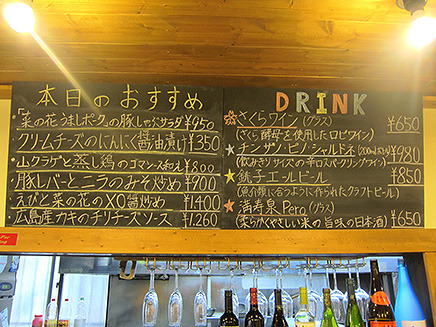 本日のおすすめ
「菜の花うましポーク」の豚しゃぶサラダ ¥950
クリームチーズのにんにく醤油漬け ¥350
山クラゲと蒸し鶏のゴマソース和え ¥800
豚レバーとニラのみそ炒め ¥900
えびと菜の花のXO醤炒め ¥1.400
広島産カキのチリチーズソース ¥1.260
DRINK
さくらワイン(グラス) ¥650
(さくら酵母を使用したロゼワイン)
チンザノ・ピノ・シャルドネ(200ml) ¥980
(飲みきりサイズの辛口スパークリングワイン)
銚子エールビール ¥850
(魚介類に合うように作られたクラフトビール)
満寿泉 Pero (グラス)
(柔らかくやさしい米の旨味の日本酒) ¥650